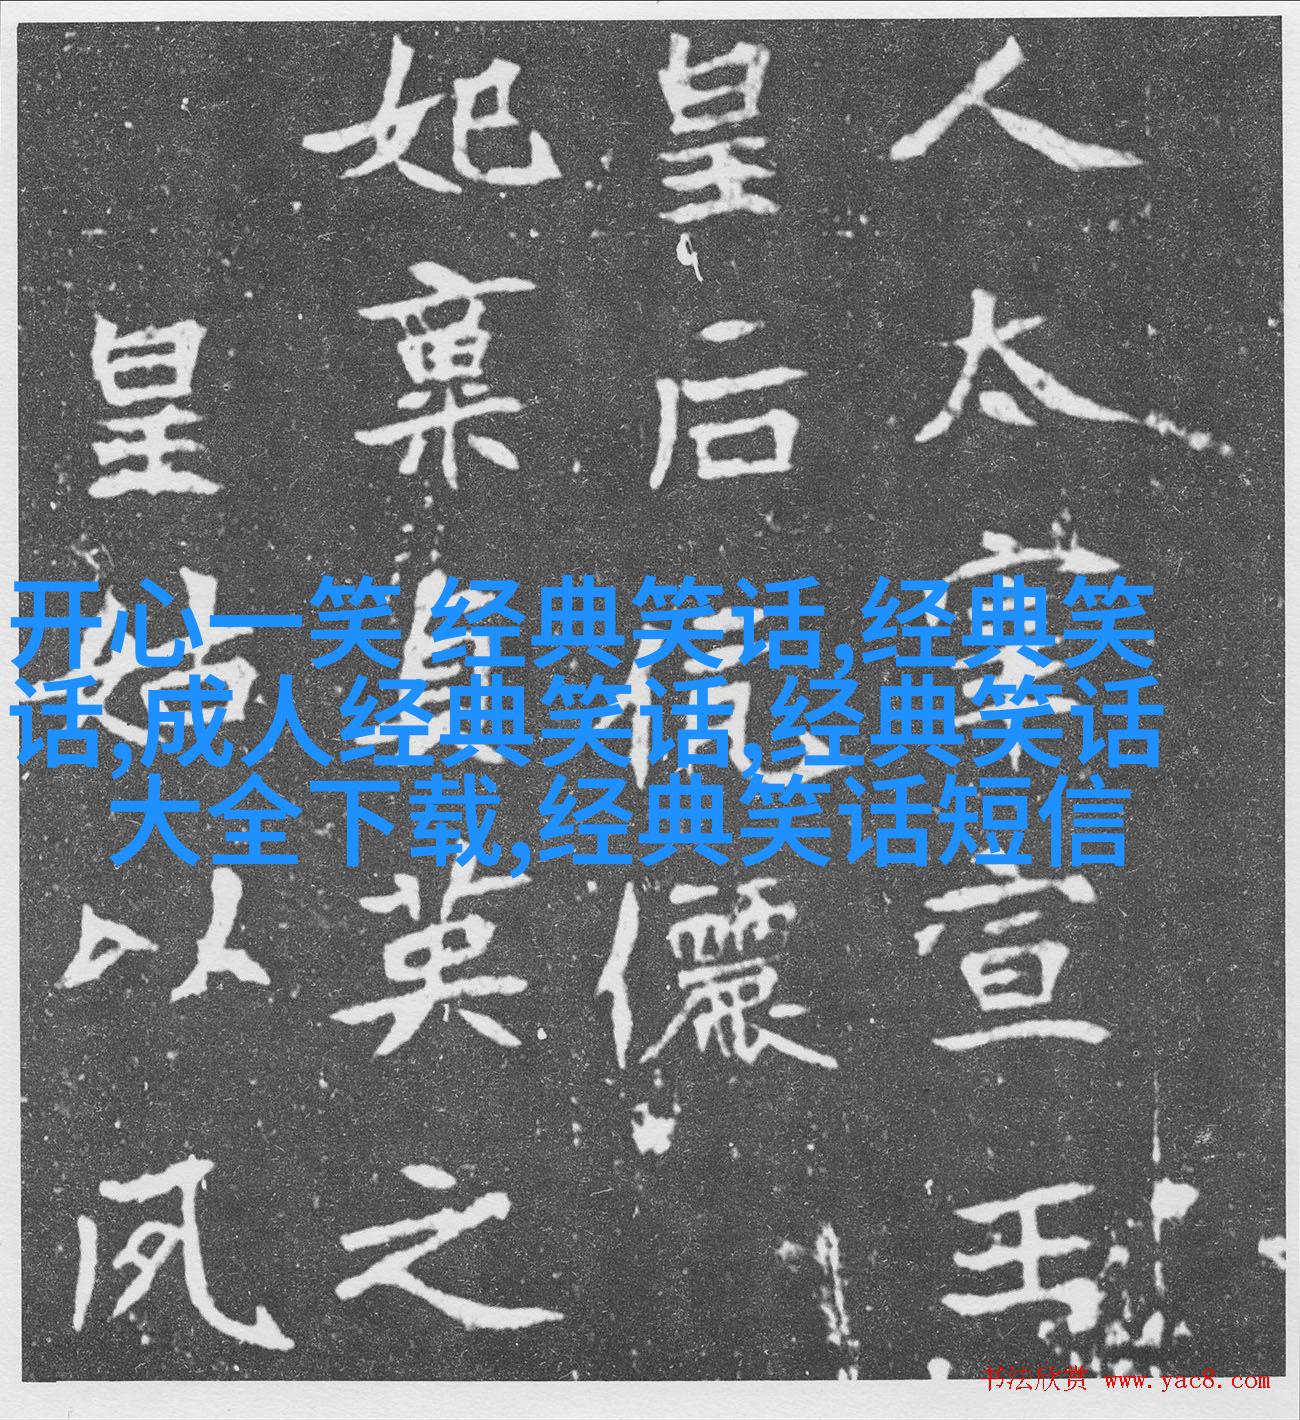 人太室宣王
皇后儷
妃稟英之
皇以夙
开心一笑 经典笑话,经典笑
话,成人经典笑话,经典笑话
大全下载,经典笑话短信
书法欣赏 www.yac8.com